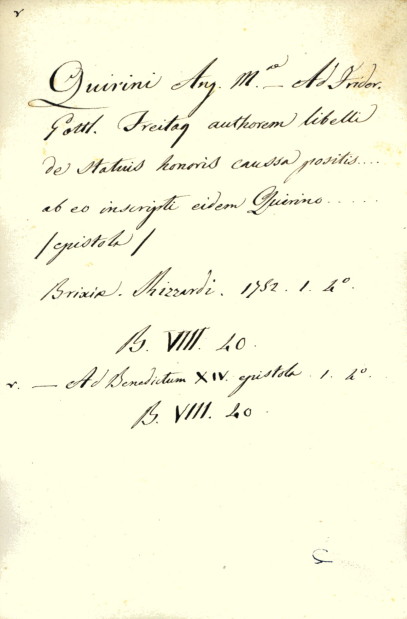 v
Quirini Ang. M.ae — Ad Frider.
Gottl. Freitag authorem libelli
de statuis honoris caussa positis....
ab eo inscripti eidem Quirino......
/epistola/
Brixiæ. Rizzardi. 1752. 1. 4º.
B. VIII. 40.
v. — Ad Benedictum XIV. epistola. 1. 4º.
B. VIII. 40.